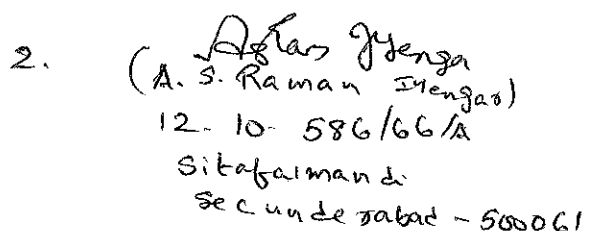 2. Iyenga
(A. S. Raman Iyengar)
12-10-586/66/A
Sitafalmandi
Secunderabad - 500061